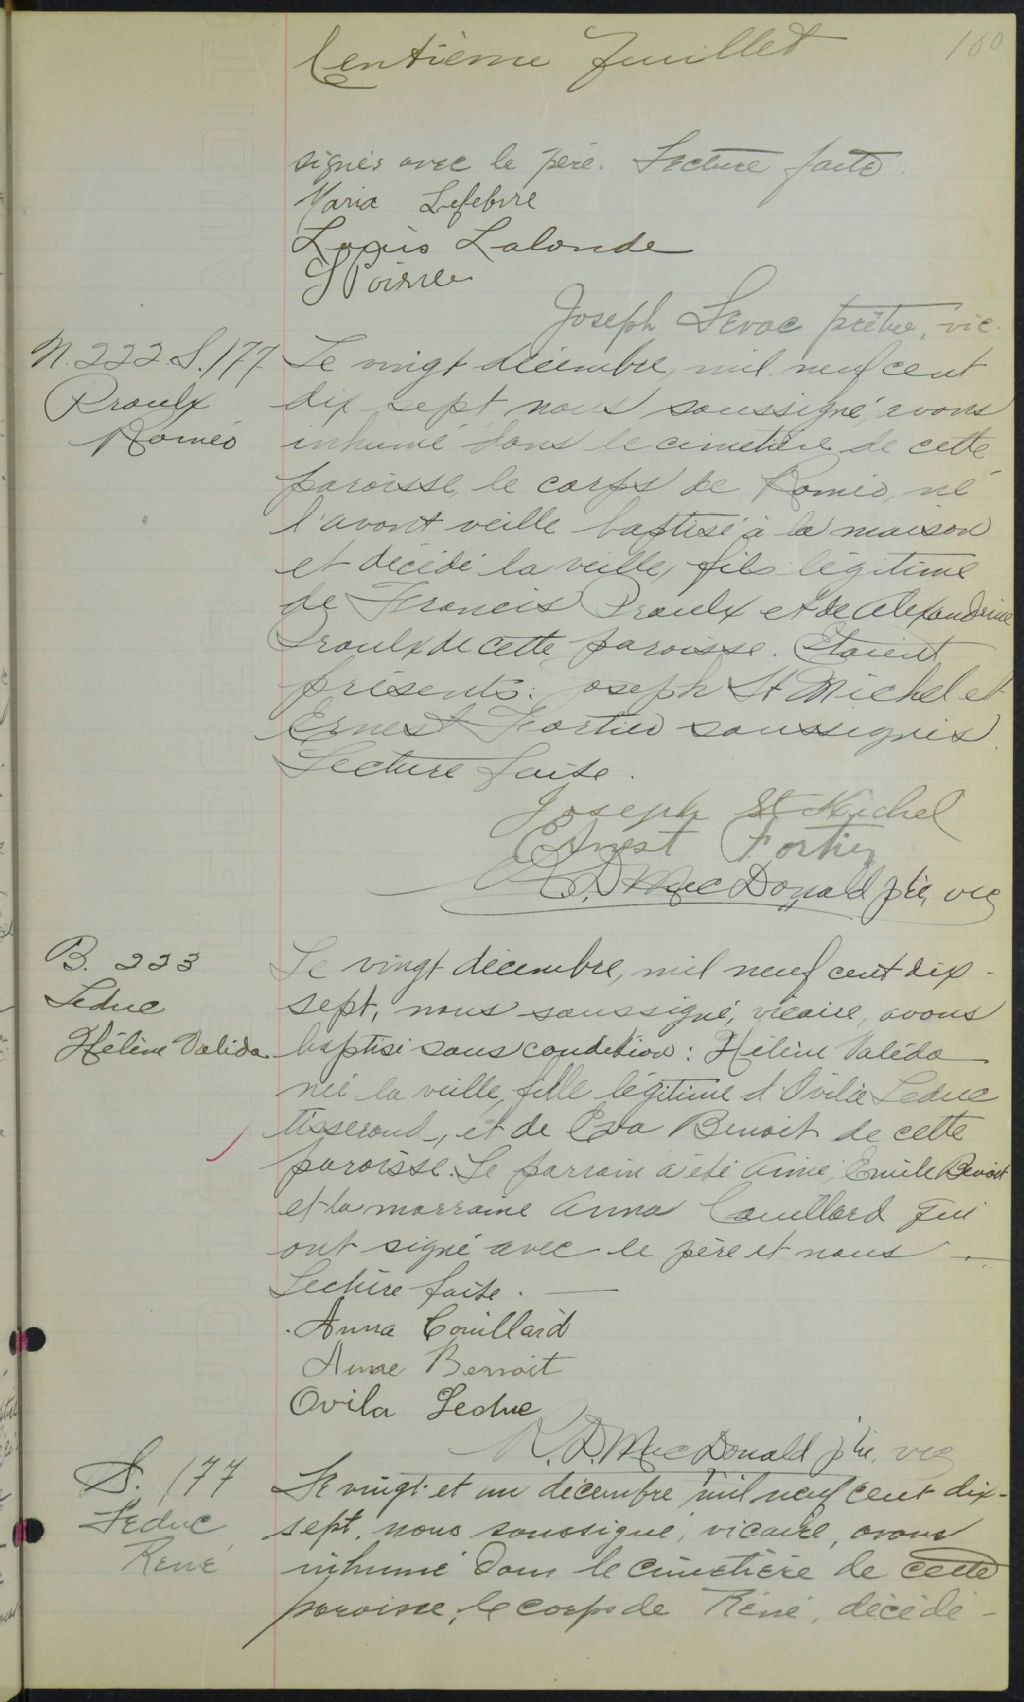 Centième feuillet
100
signés avec le père. Lecture faite.
Maria Lefebvre
Louis Lalonde
Joseph Levac prêtre, vic.
N. 222 S. 177
Proulx
Roméo
Le vingt décembre, mil neuf cent
dix sept, nous soussigné, avons
inhumé dans le cimetière de cette
paroisse, le corps de Roméo, né
l'avant veille baptisé à la maison
et décédé la veille, fils légitime
de Francis Proulx et de Alexandrine
Proulx de cette paroisse. Etaient
présents: Joseph St Michel et
Ernest Fortier soussignés.
Lecture faite.
Joseph St Michel
Ernest Fortier
D. MacDonald ptre, vic
B. 223
Leduc
Hélène Valéda
Le vingt décembre, mil neuf cent dix-
sept, nous soussigné, vicaire, avons
baptisé sous condition: Hélène Valéda
née la veille, fille légitime d'Ovila Leduc
tisserand, et de Eva Benoit de cette
paroisse. Le parrain a été Aimé, Emile Benoit
et la marraine Anna Couillard qui
ont signé avec le père et nous
Lecture faite.
Anna Couillard
Benoit
Ovila Leduc
D. MacDonald ptre. vic
S. 177
Leduc
René
Le vingt et un décembre mil neuf cent dix-
sept, nous soussigné, vicaire, avons
inhumé dans le cimetière de cette
paroisse, le corps de Réné, décédé-